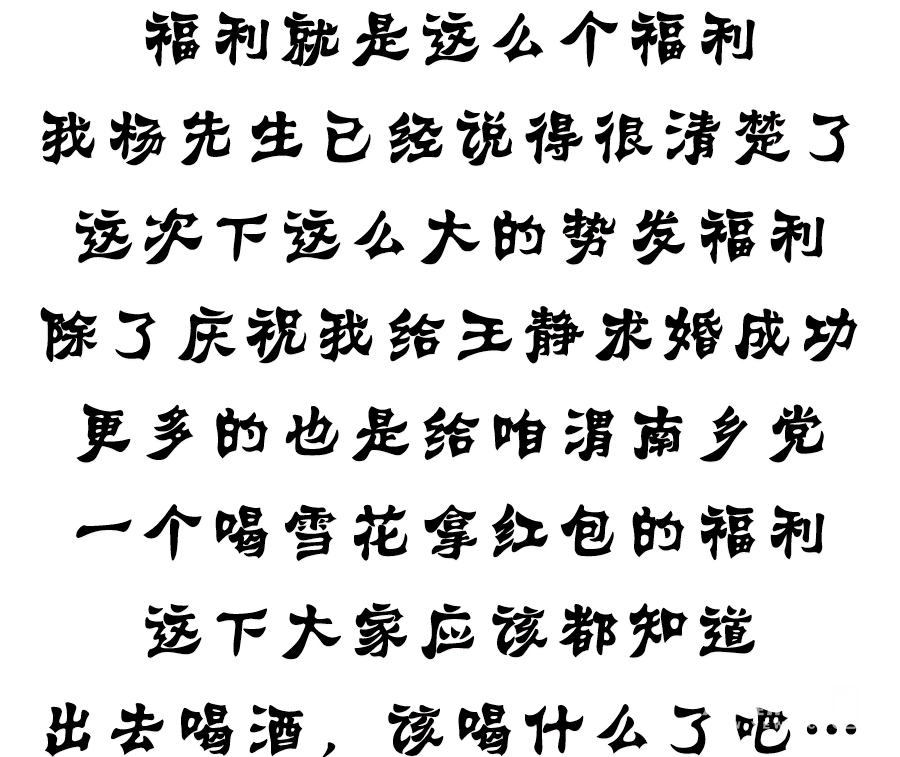 福利就是这么个福利
我杨先生已经说得很清楚了
这次下这么大的势发福利
除了庆祝我给王静求婚成功
更多的也是给咱渭南乡党
一个喝雪花拿红包的福利
这下大家应该都知道
出去喝酒，该喝什么了吧…